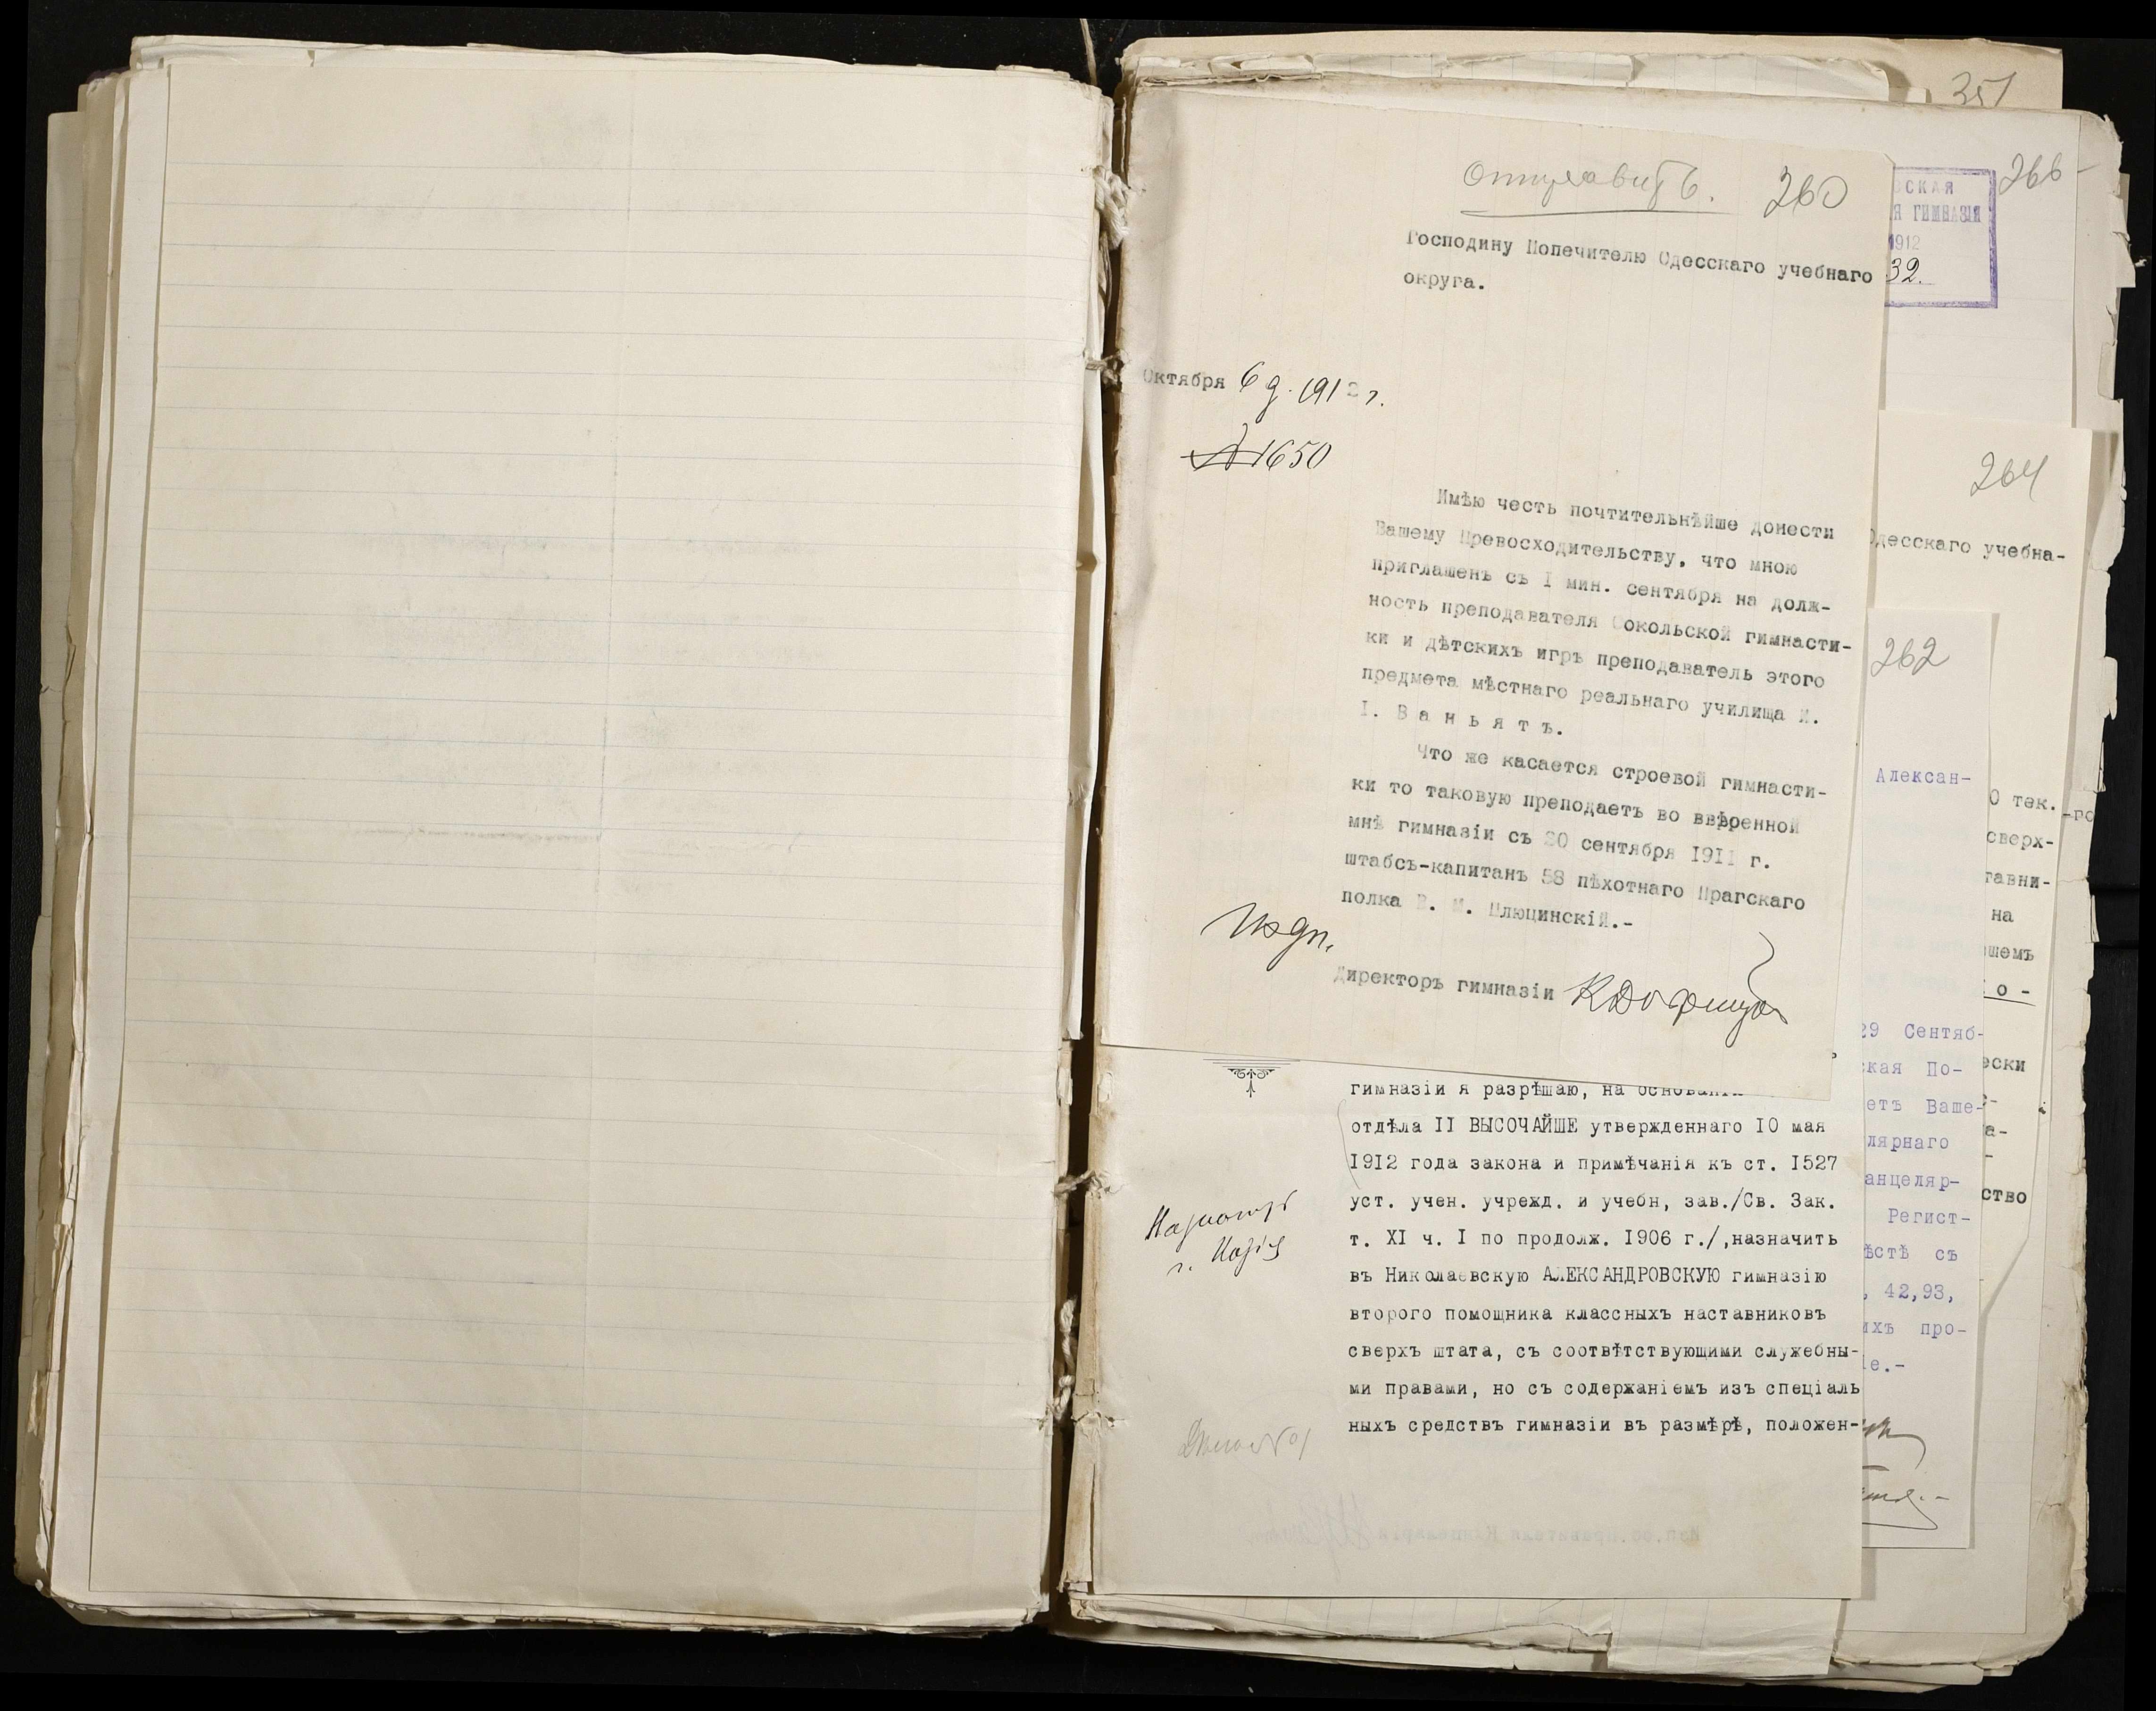 351
Отправить. 260
Господину Попечителю Одесскаго учебнаго
округа.
Октября 6 д. 1912 г.
№ 1650
Имѣю честь почтительнѣйше донести
Вашему Превосходительству, что мною
приглашенъ съ I мин. сентября на долж-
ность преподавателя Сокольской гимнасти-
ки и дѣтскихъ игръ преподаватель этого
предмета мѣстнаго реальнаго училища И.
I. Ваньятъ.
Что же касается строевой гимнасти-
ки то таковую преподаетъ во ввѣренной
мнѣ гимназіи съ 20 сентября 1911 г.
штабсъ-капитанъ 58 пѣхотнаго Прагскаго
полка В. И. Плюцинскій.-
Директоръ гимназіи
гимназіи я разрѣшаю, на основаніи
отдѣла II ВЫСОЧАЙШЕ утвержденнаго IO мая
I9I2 года закона и примѣчанія къ ст. I527
уст. учен. учрежд. и учебн, зав./Св. Зак.
т. XI ч. I по продолж. I906 г./,назначить
въ Николаевскую АЛЕКСАНДРОВСКУЮ гимназію
второго помощника классныхъ наставниковъ
сверхъ штата, съ соотвѣтствующими служебны-
ми правами, но съ содержаніемъ изъ спеціаль
ныхъ средствъ гимназіи въ размѣрѣ, положен-
266
СКАЯ
Я ГИМНАЗІЯ
1912
32.
264
Одесскаго учебна-
262
Алексан-
0 тек.
-го
сверх-
тавни-
на
шемъ
о -
29 Сентяб-
ески
ская По-
етъ Ваше-
лярнаго
анцеляр-
ство
Регист-
ѣстѣ съ
, 42,93,
ихъ про-
іе.-